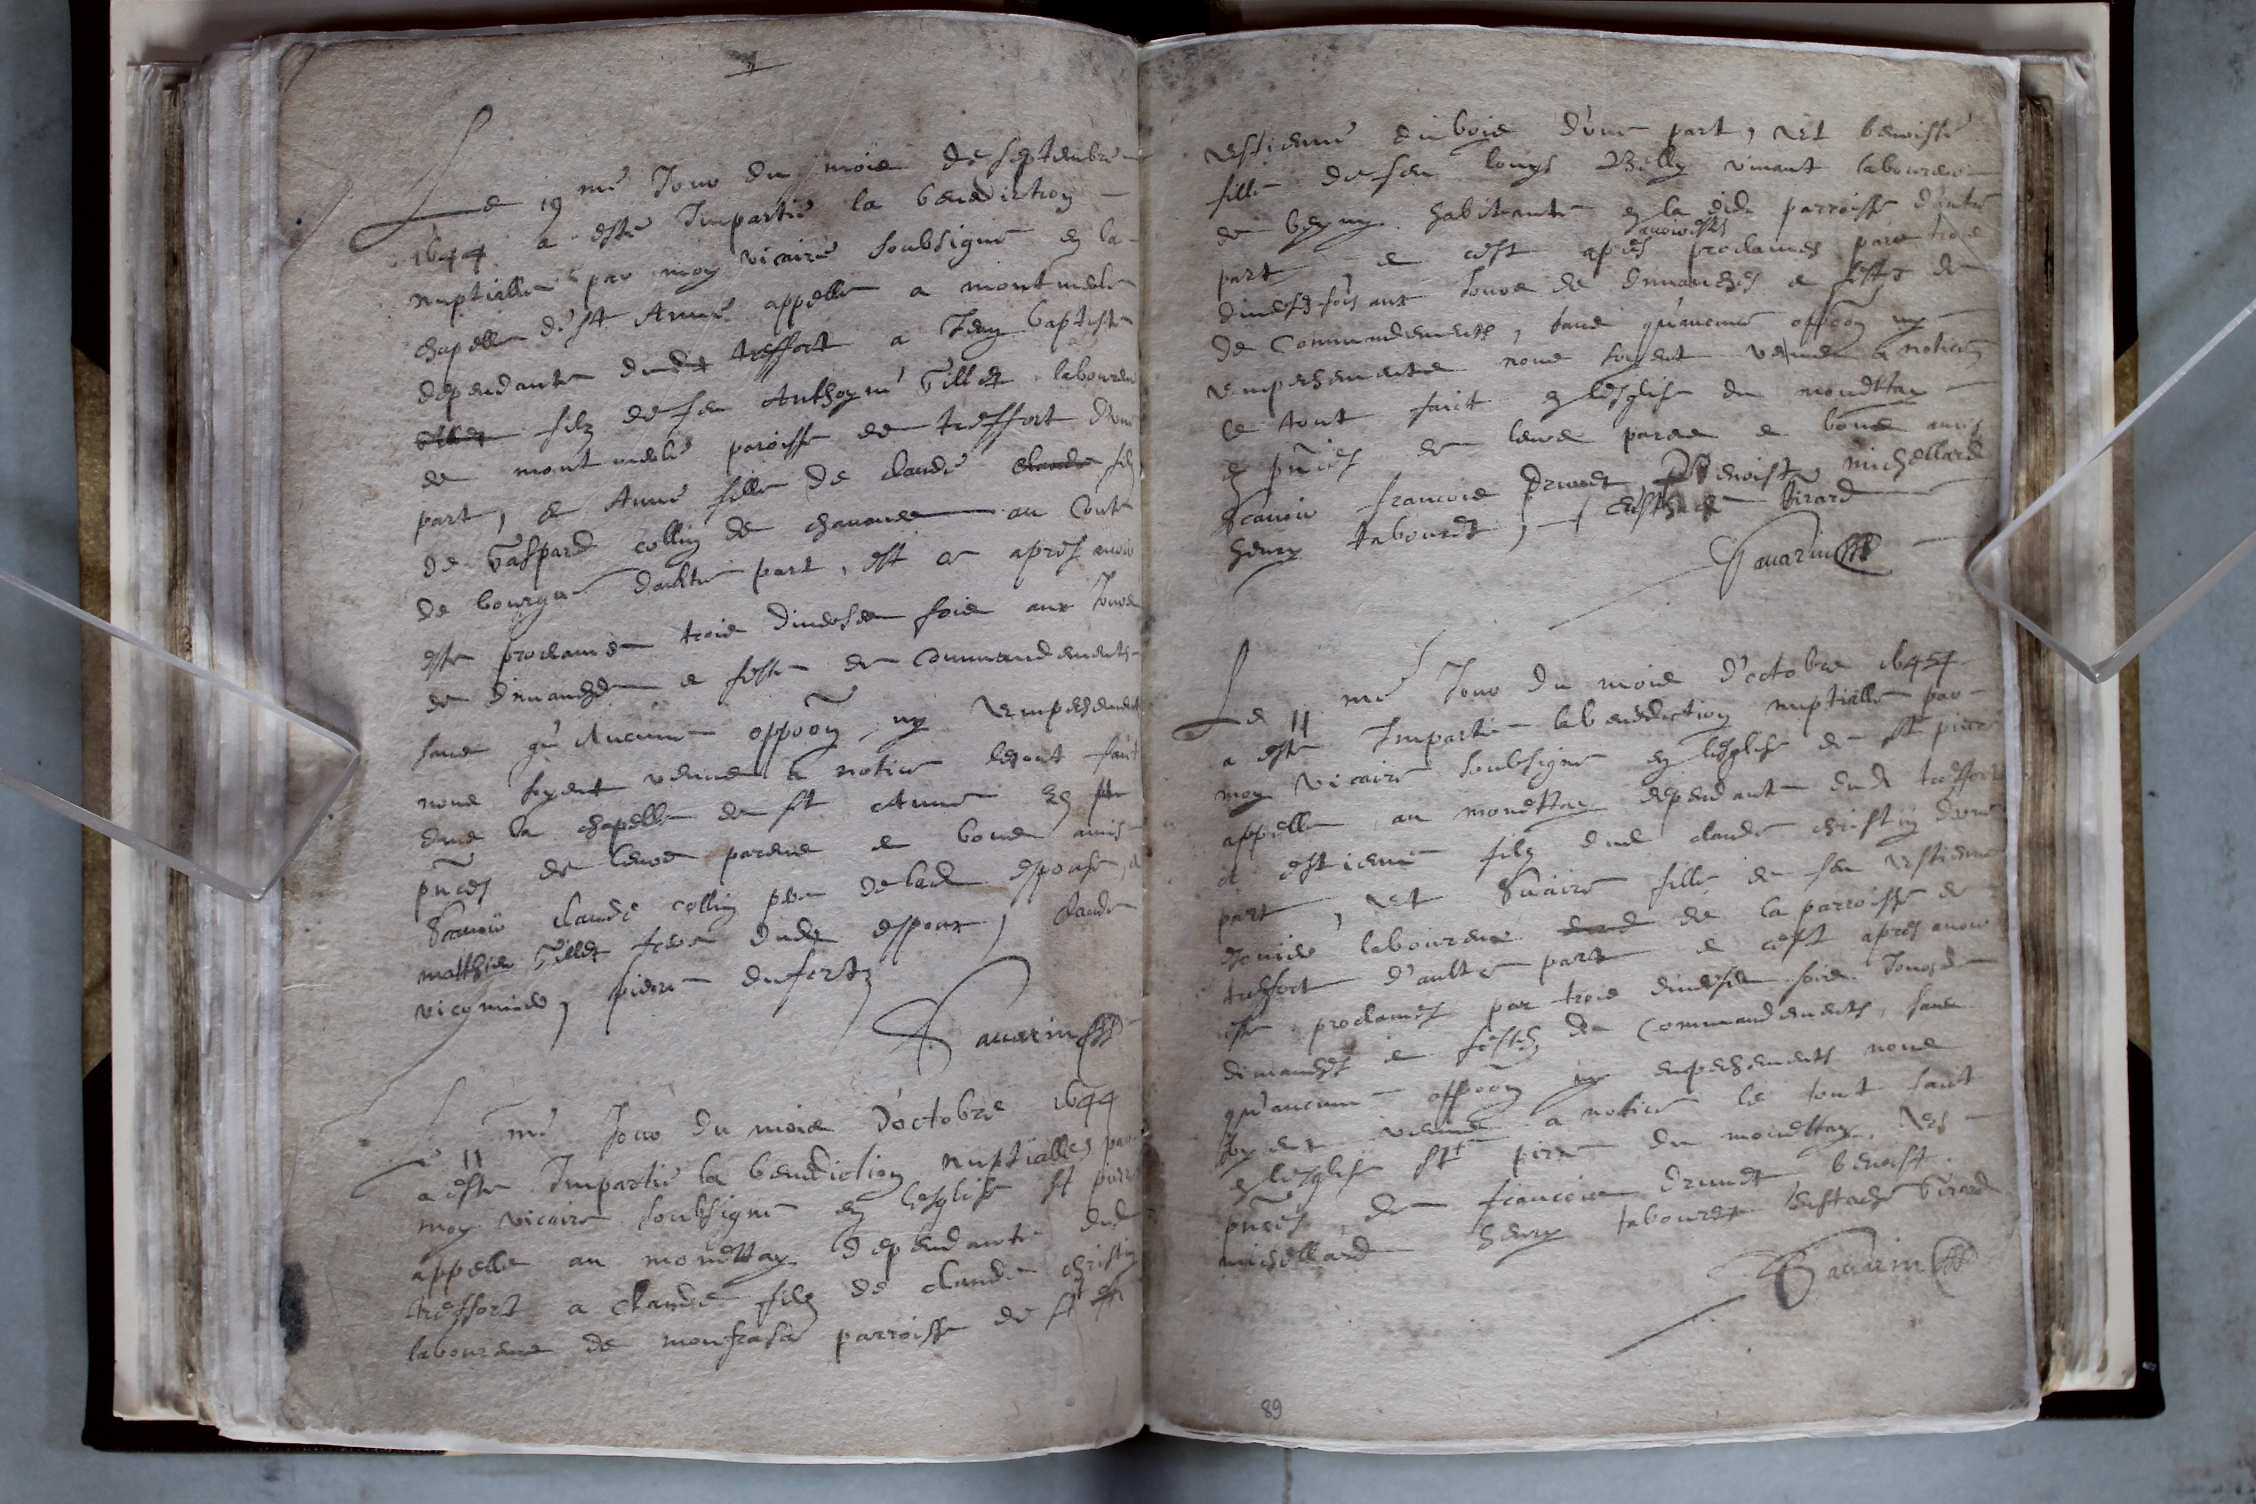 Le 19 me Jour du mois de septembre
1644 a esté Impartie la benediction
nuptialle par moy vicaire soubsigné en la
chapelle de st Anne appellee a montmerle
dependante dudt treffort a Jean baptiste
filz de feu Anthoyne Gillet laboureur
de montmerle paroisse de treffort d'une
part, et Anne fille de claude claude filz
de Gaspard collin de chavanes au conte
de bourgne d'aultre part, est ce apres avoir
este proclamés trois diverses fois aux Jours
de dimanche et feste de commandements
sans qu'Aucune oppoõn ny empechement
nous soyent venus a notice le tout faict
dans la chapelle de st Anne en
pñces de leurs parens et bons amis
scavoir claude collin pere de lad espouse, et
matthieu Gillet frere dudt espoux, claude
vicomide, pierre dufort
Savarin
Le 11 me Jour du mois d'octobre 1644
a este Impartie la benediction nuptialle par
moy vicaire soubsigné en l'esglise st pierre
appelle au monettay dependante dudt
treffort a claude filz de claude christin
laboureur de montfrasa parroisse de st
estienne du bois d'une part, et benoiste
fille de feu louys Billy vivant laboureur
de beyny habitante en la dicte parroisse d'autre
part, et cest apres avoir estés proclamés par trois
diverses fois aux Jours de dimanches et festes de
de Commandements, sans qu'aucune oppoõn ny
empechements nous soyent venus a notice
le tout faict en l'esglise du monettay
en pñces de leurs parens et bons amis
scavoir francois drumet, Benoist michellard
henry tabouret, eustache Girard
Savarin
Le 11 me Jour du mois d'octobre 1644
a este Impartie la benediction nuptialle par
moy vicaire soubsigné en l'esglise de st pierre
appelle au monettay dependante dudt treffort
a estienne filz dud claude christin d'une
part, et Suaire fille de feu estienne
laboureur de la parroisse de
treffort d'aultre part et cest apres avoir
este proclamés par trois diverses fois Jours de
dimanches et festes de commandements, sans
qu'aucune oppoõn ny enpechements nous
soyent venus a notice le tout faict
en l'esglise st pierre du monettay es
pñces de francois drumet benoist
michellard henry tabouret eustache Girard
Savarin
89